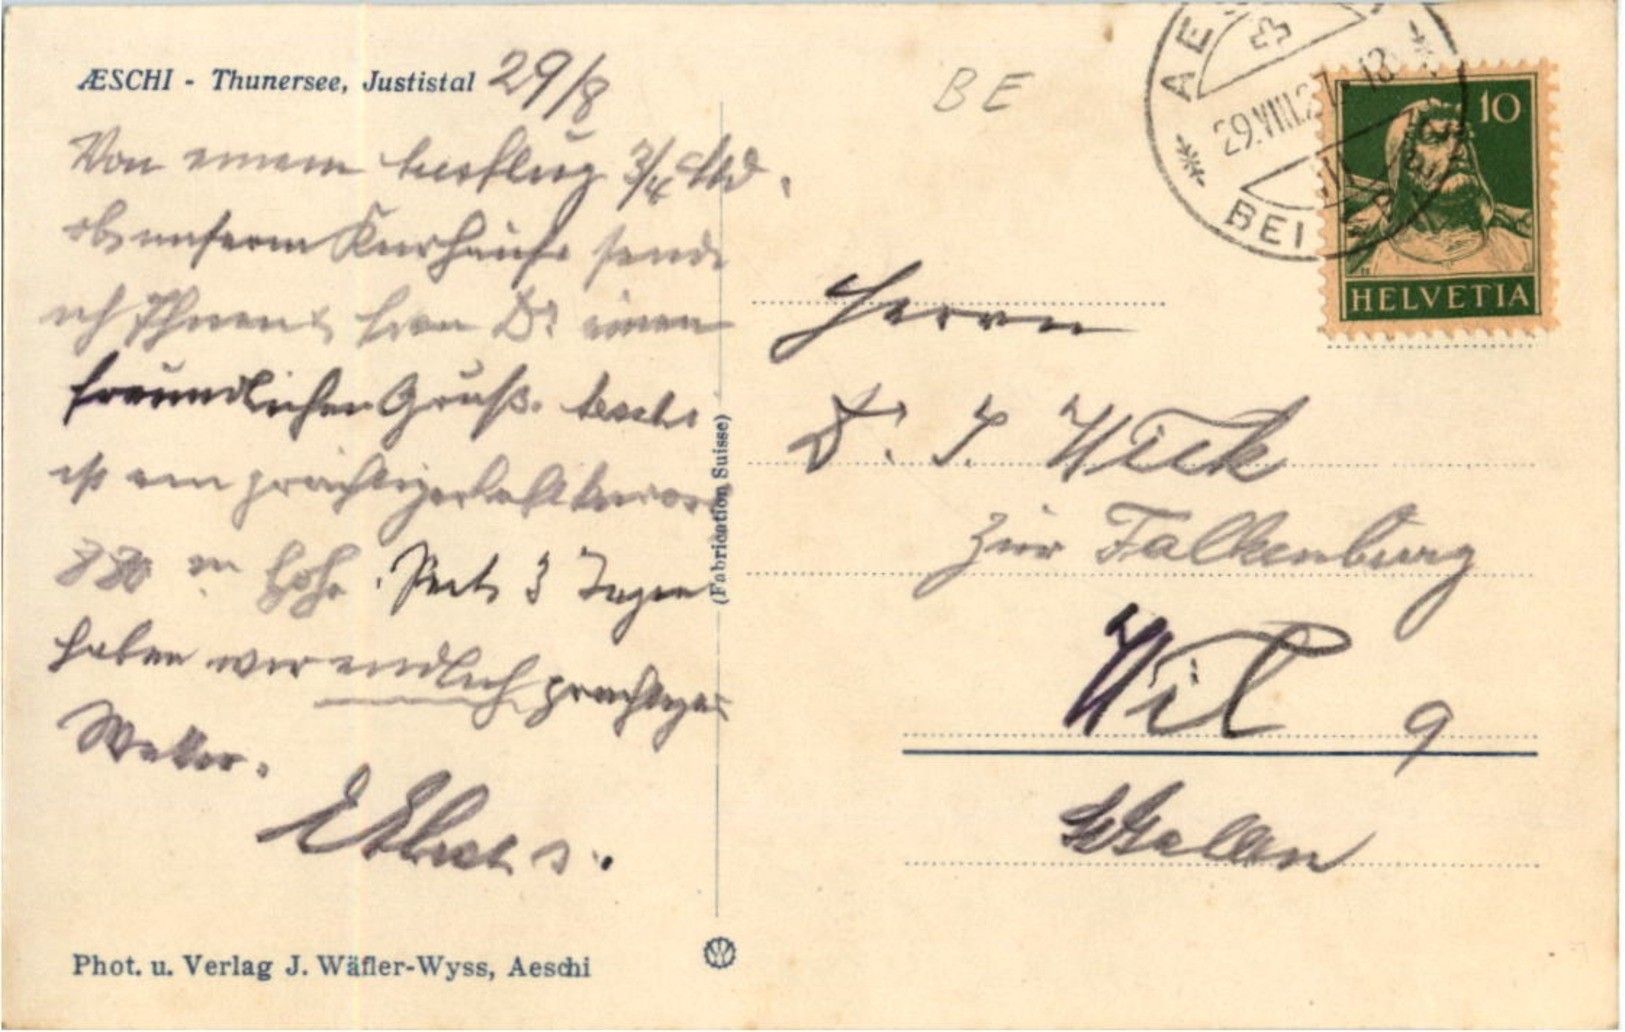 ÆSCHI - Thunersee, Justistal 29/8
Von einem Ausflug 3/4 Std.
ob unserm Kurhause sende
ich Ihnen Herrn Dr einen
freundlichen Gruß. Aeschi
ist ein prächtiger
m Höhe. Seit 3 Tagen
haben wir endlich prächtiges
Wetter.
Phot. u. Verlag J. Wäfler-Wyss, Aeschi
(Fabrication Suisse)
BE
29.VIII.27
BEI
10
HELVETIA
Herrn
Dr. J. Wick
zur Falkenburg
Wil
St Gallen